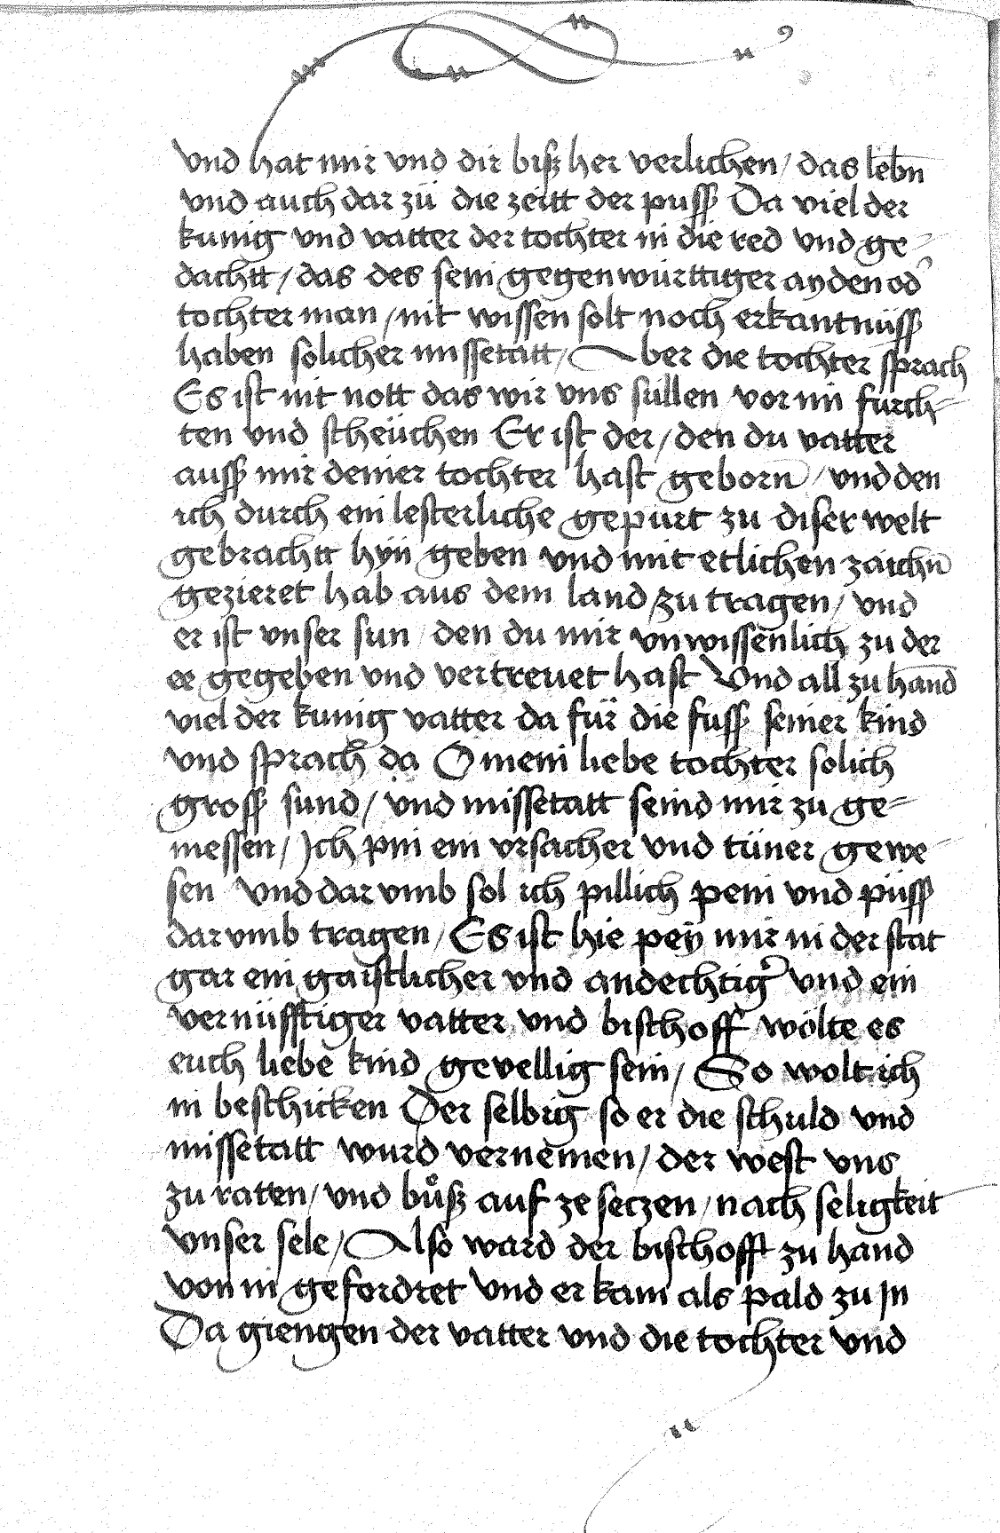 vnd hat mir vnd dir bisz her verlichen / das lebn̄
vnd auch dar zü die zeitt der puss Da viel der
kunig vnd vatter der tochter in die red vnd ge=
dachtt / das des sein gegenwürttiger ayden od'
tochter man / nit wissen solt noch erkantnüss
haben solicher missetatt / Aber die tochter sprach
Es ist nit nott das wir vns süllen vor im fürch=
ten vnd scheüchen Er ist der / den du vatter
auss mir deiner tochter hast geborn / vnd den
ich durch ein lesterliche gepurt zu diser welt
gebrachtt hyn geben vnd mit etlichen zaichn̄
gezieret hab aus dem land zu tragen / vnd
er ist vnser sun / den du mir vnwissenlich zu der
ee gegeben vnd vertreuet hast Vnd all zu hand
viel der kunig vatter da für die füss seiner kind
vnd sprach da O mein liebe tochter solich
gross sund / vnd missetatt seind mir zu ge=
messen / Ich pin ein vrsacher vnd tüner gewe=
sen vnd dar vmb sol ich pillich pein vnd püss
dar vmb tragen / Es ist hie pey mir in der stat
gar ein gaistlicher vnd andechtig' vnd ein
vernüfftiger vatter vnd bischoff wölte es
euch liebe kind gevellig sein / So wolt ich
in beschicken Der selbig so er die schuld vnd
missetatt wurd vernemen / der west vns
zu ratten / vnd bůsz auf ze seczen / nach seligkeit
vnser sele / Also ward der bischofft zu hand
von in gefordret vnd er kam als pald zu In
Da giengen der vatter vnd die tochter vnd